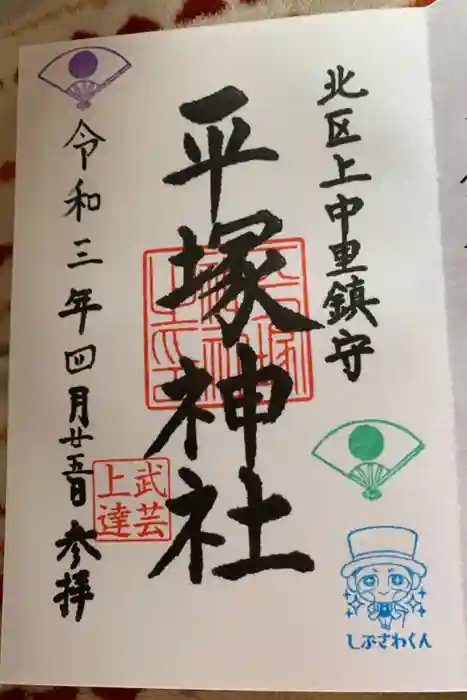 北区上中里鎮守
平塚神社
武芸
上達
令和三年四月廿五日参拝
しぶさわくん